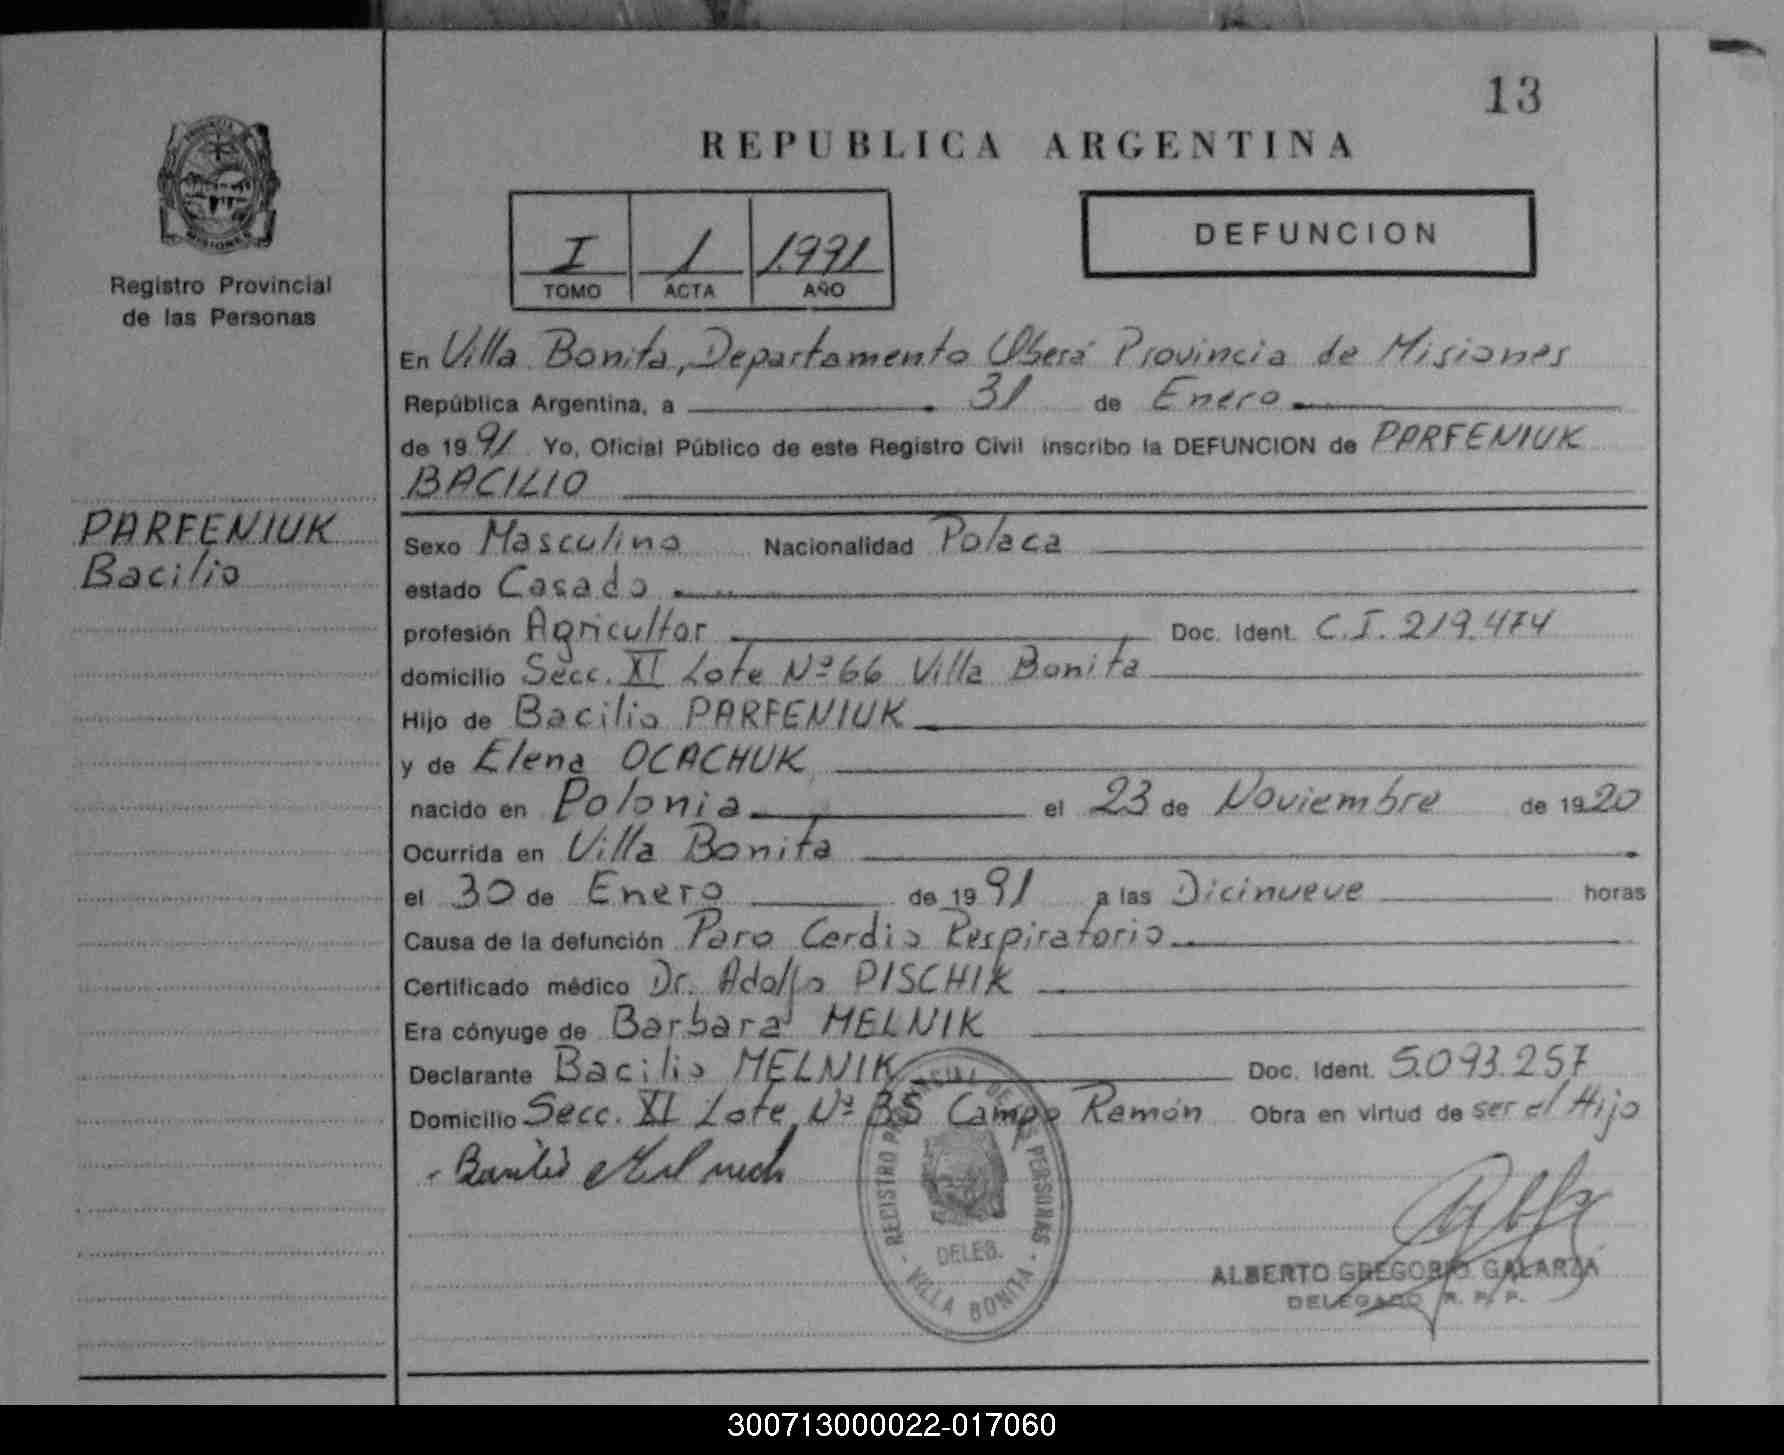 13
REPUBLICA ARGENTINA
PROVINCIA
MISIONES
Registro Provincial
de las Personas
I 1 1991
TOMO ACTA AÑO
DEFUNCION
En Villa Bonita, Departamento Oberá Provincia de Misiones
República Argentina, a 31 de Enero
de 1991 Yo, Oficial Público de este Registro Civil inscribo la DEFUNCION de PARFENIUK
BACILIO
PARFENIUK
Bacilio
Sexo Masculino Nacionalidad Polaca
estado Casado
profesión Agricultor Doc. Ident. C.I. 219.474
domicilio Secc. XI Lote Nº 66 Villa Bonita
Hijo de Bacilio PARFENIUK
y de Elena OCACHUK
nacido en Polonia el 23 de Noviembre de 1920
Ocurrida en Villa Bonita
el 30 de Enero de 1991 a las Dicinueve horas
Causa de la defunción Paro Cardio Respiratorio
Certificado médico Dr. Adolfo PISCHIK
Era cónyuge de Barbara MELNIK
Declarante Bacilio MELNIK Doc. Ident. 5.093.257
Domicilio Secc. XI Lote Nº Campo Ramón Obra en virtud de ser el Hijo
REGISTRO PROVINCIAL DE LAS PERSONAS
DELEG.
VILLA BONITA
ALBERTO GREGORIO GALARZA
DELEGADO R. P. P.
300713000022-017060